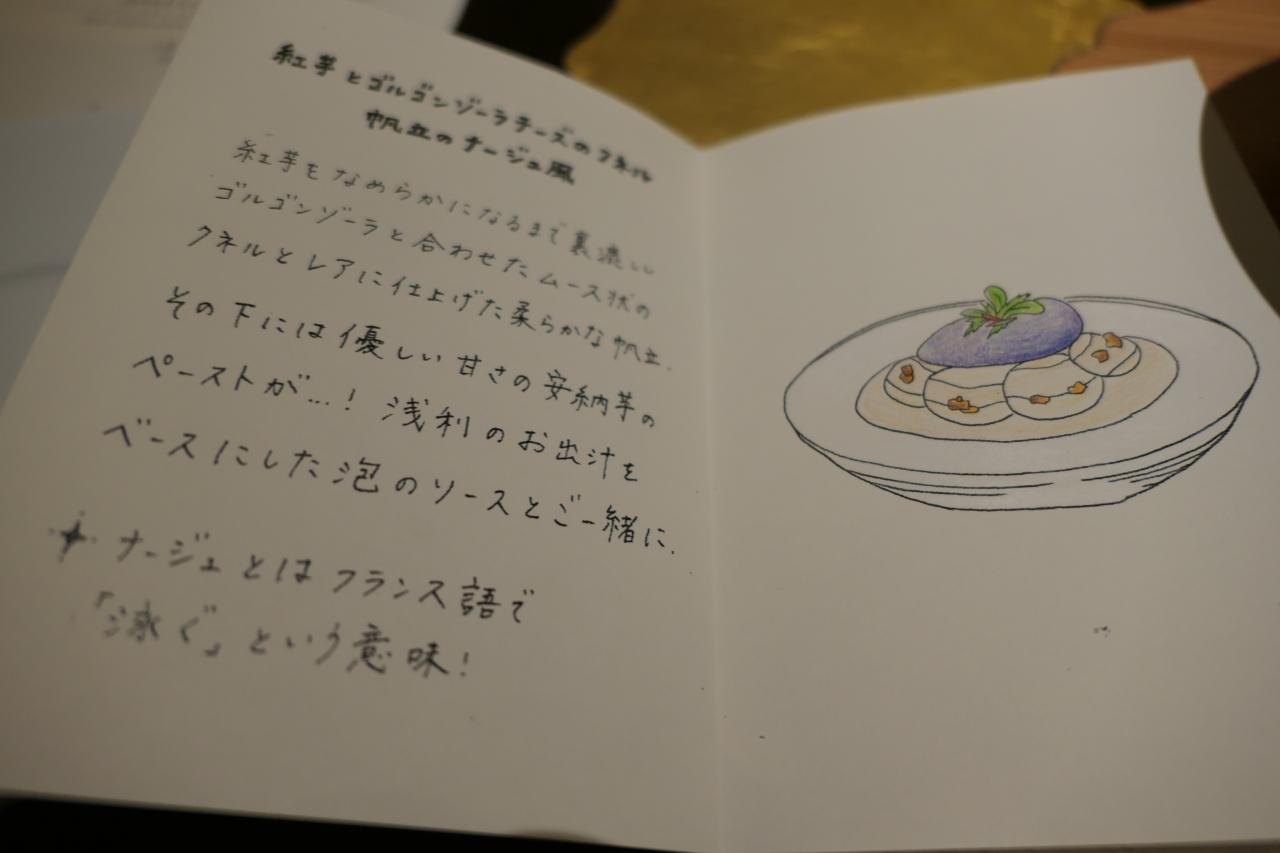 紅芋とゴルゴンゾーラチーズのクネル
帆立のナージュ風
紅芋をなめらかになるまで裏漉しし
ゴルゴンゾーラと合わせたムース状の
クネルとレアに仕上げた柔らかな帆立.
その下には優しい甘さの安納芋の
ペーストが…! 浅利のお出汁を
ベースにした泡のソースとご一緒に.
ナージュとはフランス語で
「泳ぐ」という意味!